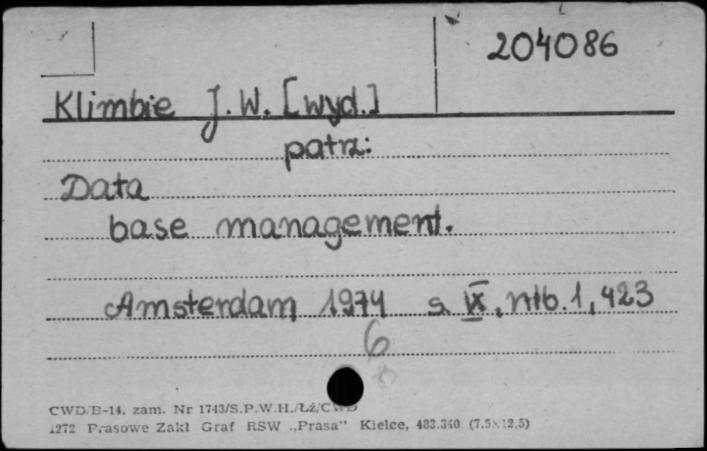 204086
Klimbie J. W. [wyd.]
patrz:
Data
base management.
Amsterdam 1974 s. IX, nlb. 1, 423
6
CWD/E-14. zam. Nr 1743/S.P.W.H./ŁŻ/CWD
1272 Prasowe Zakł Graf RSW „Prasa" Kielce, 483.340 (7.5×12,5)